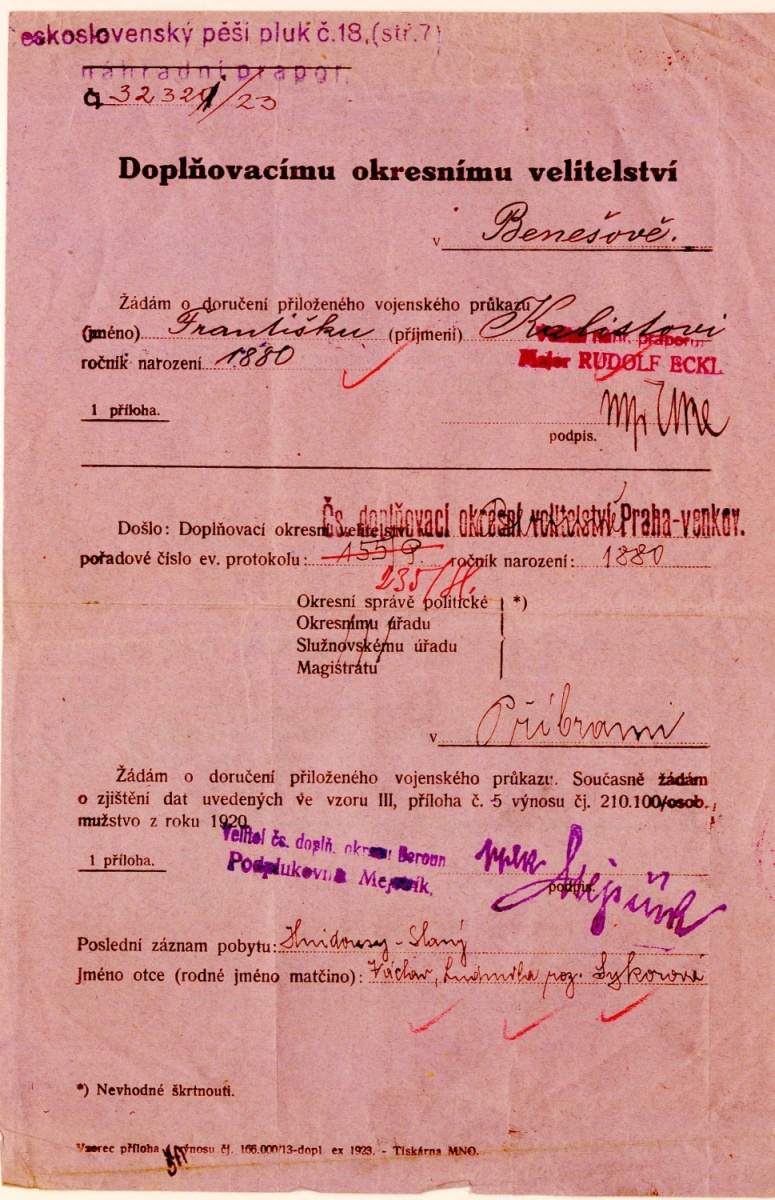 eskoslovenský pěší pluk č.18,(stř.7)
náhradní prapor.
Č. 32321/23
Doplňovacímu okresnímu velitelství
v Benešově.
Žádám o doručení přiloženého vojenského průkazu
(jméno) Františku (příjmení) Kalistovi
náhr. praporu:
ročník narození 1880
Major RUDOLF ECKL
1 příloha.
podpis.
Čs. doplňovací okresní velitelství Praha-venkov.
Došlo: Doplňovací okresní velitelství
pořadové číslo ev. protokolu: 1559 ročník narození: 1880
235/
Okresní správě politické *)
Okresnímu úřadu
Služnovskému úřadu
Magistrátu
v Příbrami
Žádám o doručení přiloženého vojenského průkazu. Současně žádám
o zjištění dat uvedených ve vzoru III, příloha č. 5 výnosu čj. 210.100/osob.
mužstvo z roku 1920.
Velitel čs. doplň. okresu Beroun
1 příloha.
Podplukovník
podpis.
Poslední záznam pobytu: Hnidousy-Slaný
Jméno otce (rodné jméno matčino): Václav, Ludmila roz. Sykorová
*) Nevhodné škrtnouti.
Vzorec příloha výnosu čj. 166.000/13-dopl. ex 1923. - Tiskárna MNO.